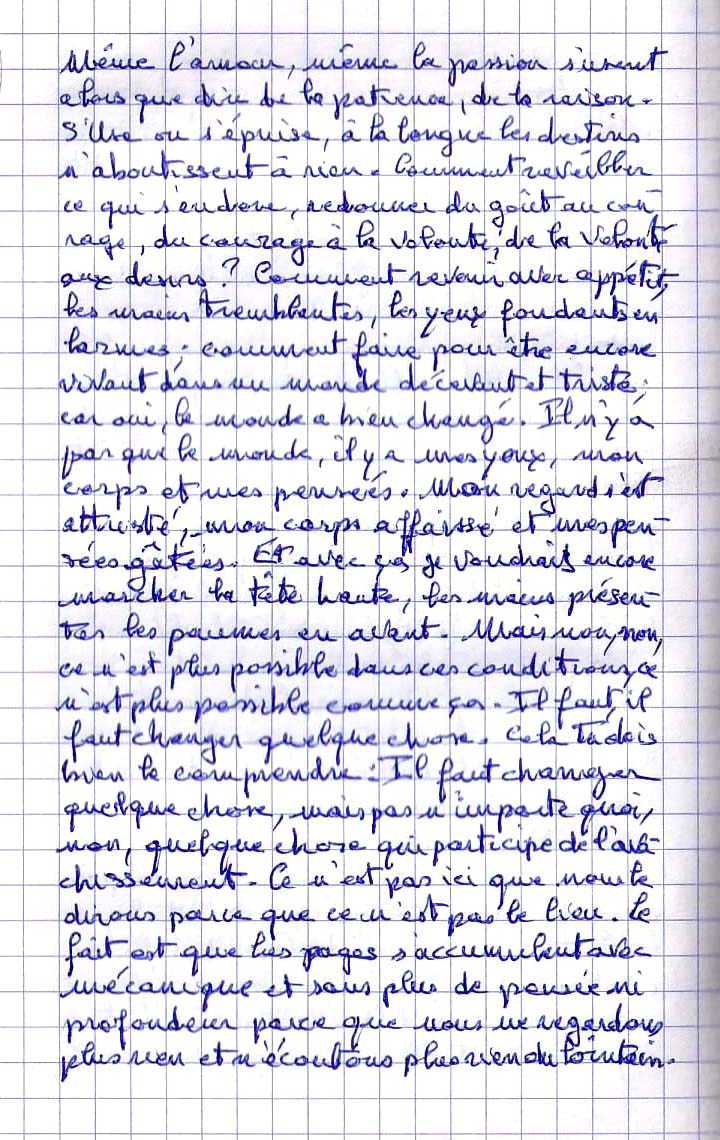 Même l'amour, même la passion s'usent
alors que dire de la patience, de la raison.
S'use ou s'épuise, à la longue les destins
n'aboutissent à rien. Comment réveiller
ce qui s'endore, redonner du goût au cou-
rage, du courage à la volonté, de la volonté
aux desirs? Comment revenir avec appétit,
les mains tremblantes, les yeux fondants en
larmes; comment faire pour être encore
vivant dans un monde décevant et triste;
car oui, le monde a bien changé. Il n'y a
pas que le monde, il y a mes yeux, mon
corps et mes pensées. Mon regard s'est
attristé, mon corps affaissé et mes pen-
sées gâtées. Et avec ça je voudrais encore
marcher la tête haute, les mains présen-
tes les paumes en avant. Mais non, non,
ce n'est plus possible dans ces conditions, ce
n'est plus possible comme ça. Il faut, il
faut changer quelque chose. Cela Tu dois
bien le comprendre: Il faut changer
quelque chose, mais pas n'importe quoi,
non, quelque chose qui participe de l'ava-
chissement. Ce n'est pas ici que nous le
dirons parce que ce n'est pas le lieu. Le
fait est que les pages s'accumulent avec
mécanique et sans plus de pensée ni
profondeur parce que nous ne regardons
plus rien et n'écoutons plus rien du lointain.